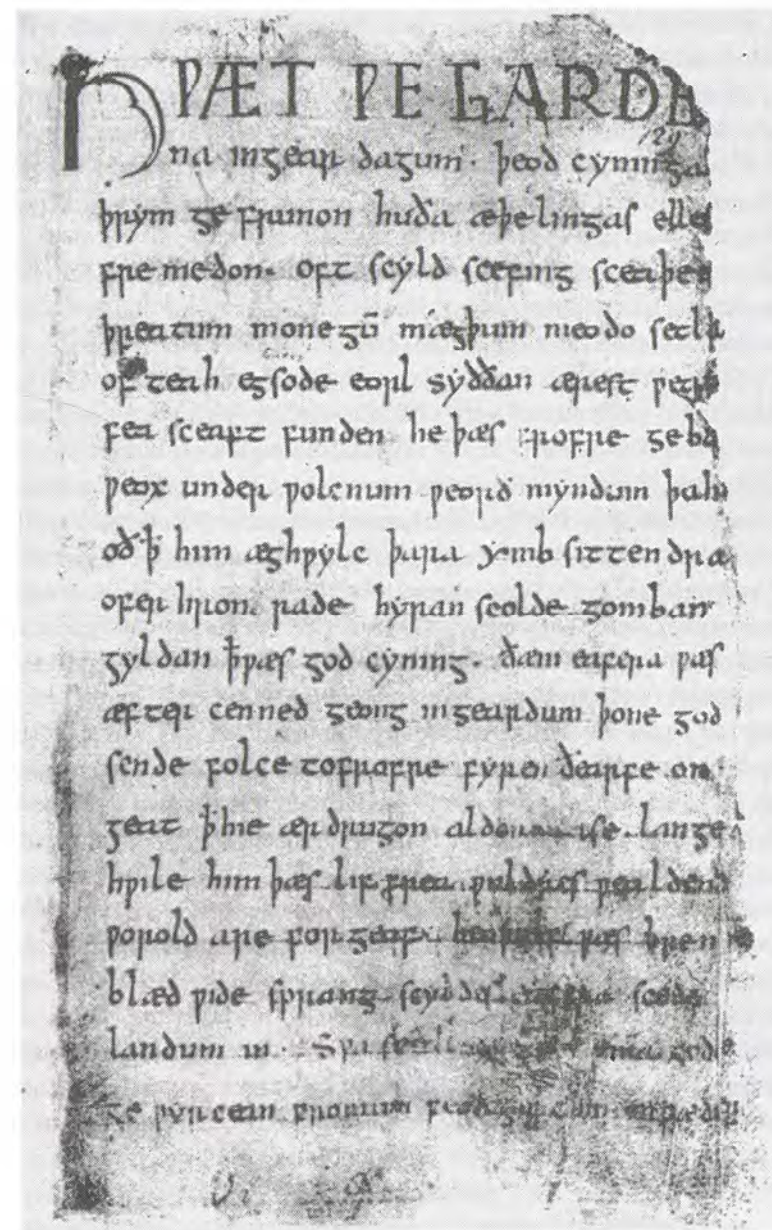 HǷÆT ǷE GARDE
na ingear dagum. þeod cyninga
þrym ge frunon huða æþelingas elle
fre medon. oft scyld scefing sceaþe
þreatum monegū mægþum meodo setla
of teah egsode eorl syððan ærest ƿear
fea sceaft funden he þæs frofre geba
ƿeox under ƿolcnum ƿeorð myndum þah
oð ꝥ him æghƿylc þara ymb sittendra
ofer hron rade hyran scolde gomban
gyldan ꝥƿæs god cyning. ðæm eafera ƿæs
æfter cenned geong ingeardum þone god
sende folce tofrofre fyren ðearfe on
geat ꝥhie ær drugon aldor ase. lange
hƿile him þæs lif frea ƿuldres ƿealdend
ƿorold are forgeaf. ƿæs brem
blæd ƿide sprang scyldes eafera scede
landum in. Sƿa sceal gode
ge ƿyrcean fromum feoh giftum